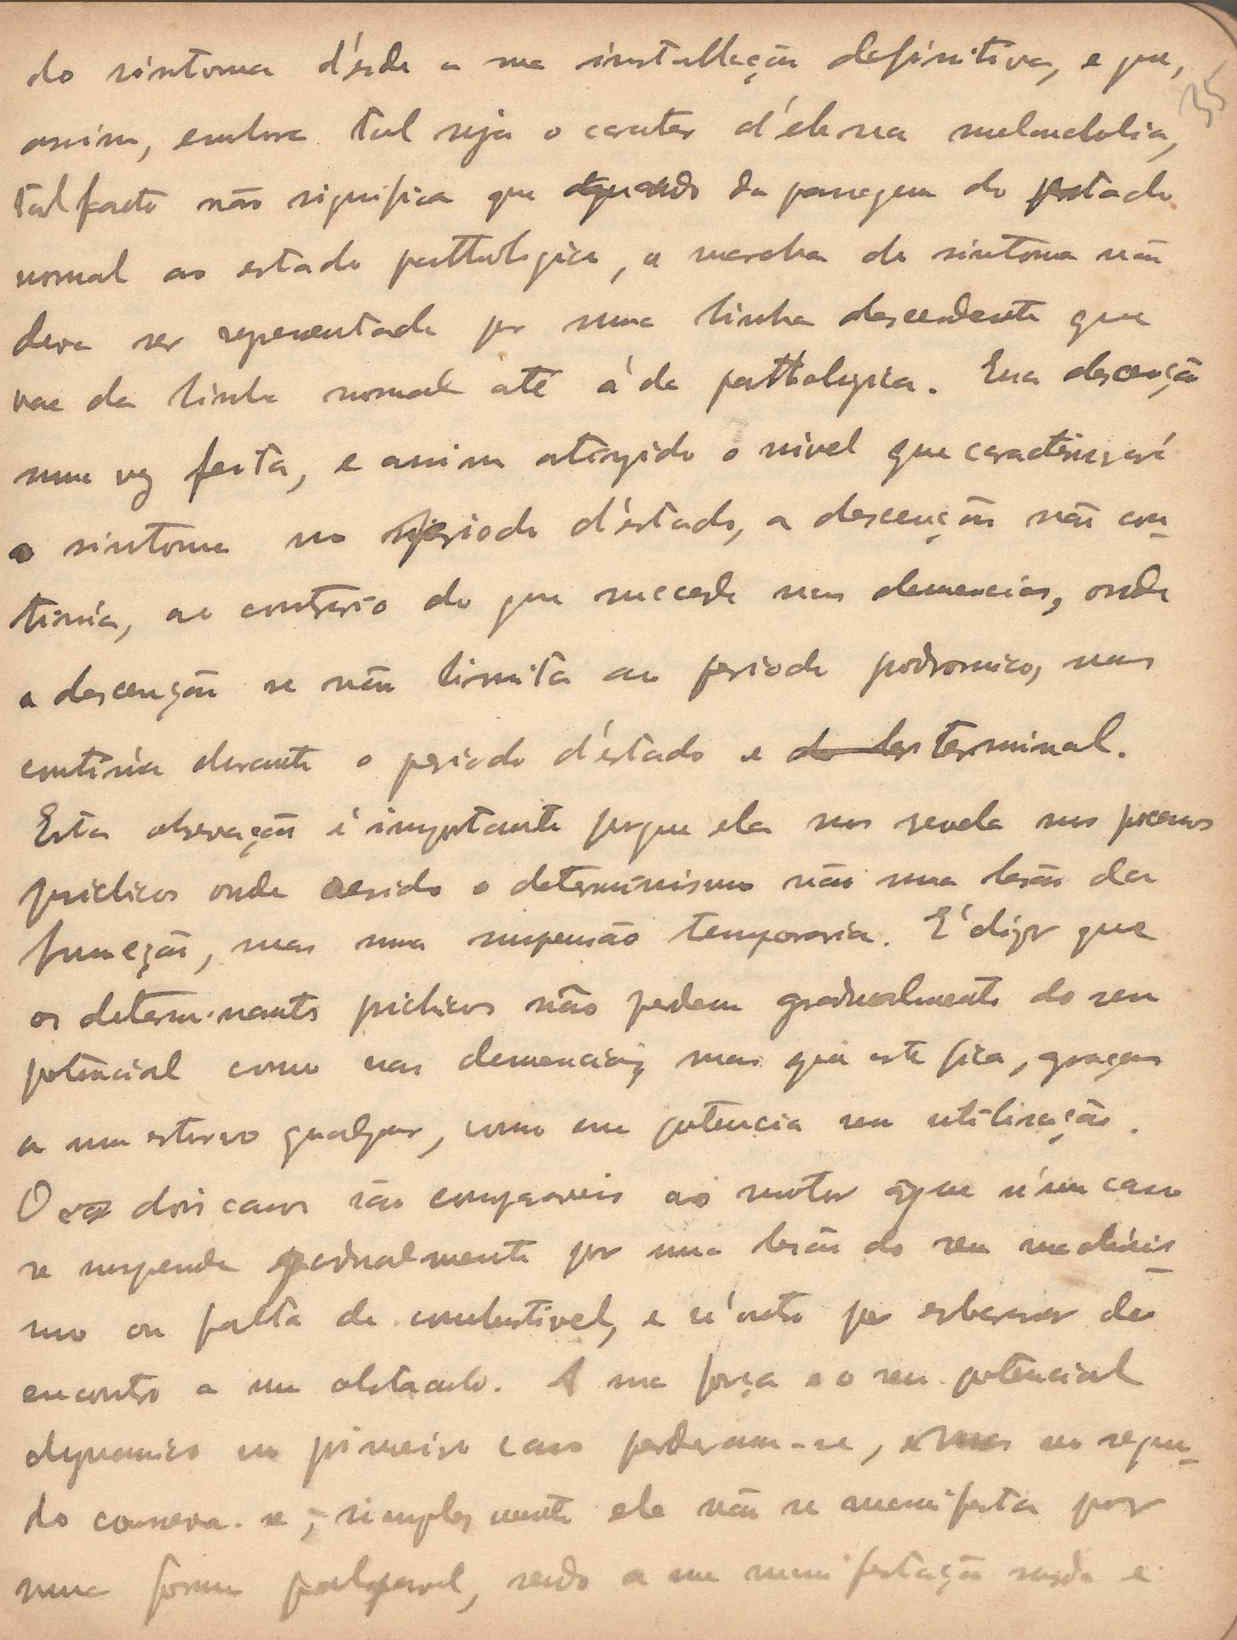 do sintoma d'ésde a sua installação definitiva, e que,
35
assim, embora tal seja o carater d'éssa melancholia,
tal facto não significa que quando da passagem do estado
normal ao estado pathologico, a marcha do sintoma não
deva ser representada por uma linha descendente que
vae da linha normal até á da pathologica. Essa descenção
uma vez feita, e assim atingido o nivel que caracterizará
o sintoma no periodo d'éstado, a descenção não con-
tinúa, ao contrario do que succede nas demencias, onde
a descenção se não limita ao periodo prodromico, mas
continúa durante o periodo d'éstado e do terminal.
Esta observação é importante porque ela nos revela nos processos
psichicos onde reside o determinismo não uma lesão da
funcção, mas uma suspensão temporaria. E' dizer que
os determinantes psichicos não perdem gradualmente do seu
potencial como nas demencias, mas que este fica, graças
a um estorvo qualquer, como em potencia sem utilisação.
Os dois casos são comparaveis ao motor que n'um caso
se suspende gradualmente por uma lesão do seu machinis-
mo ou falta de combustivel, e n'outro por esbarrar de
encontro a um obstaculo. A sua força e o seu potencial
dynamico no primeiro caso perderam-se, mas no segun-
do conserva-se; simplesmente ele não se manifesta por
uma forma palpavel, sendo a sua manifestação surda e